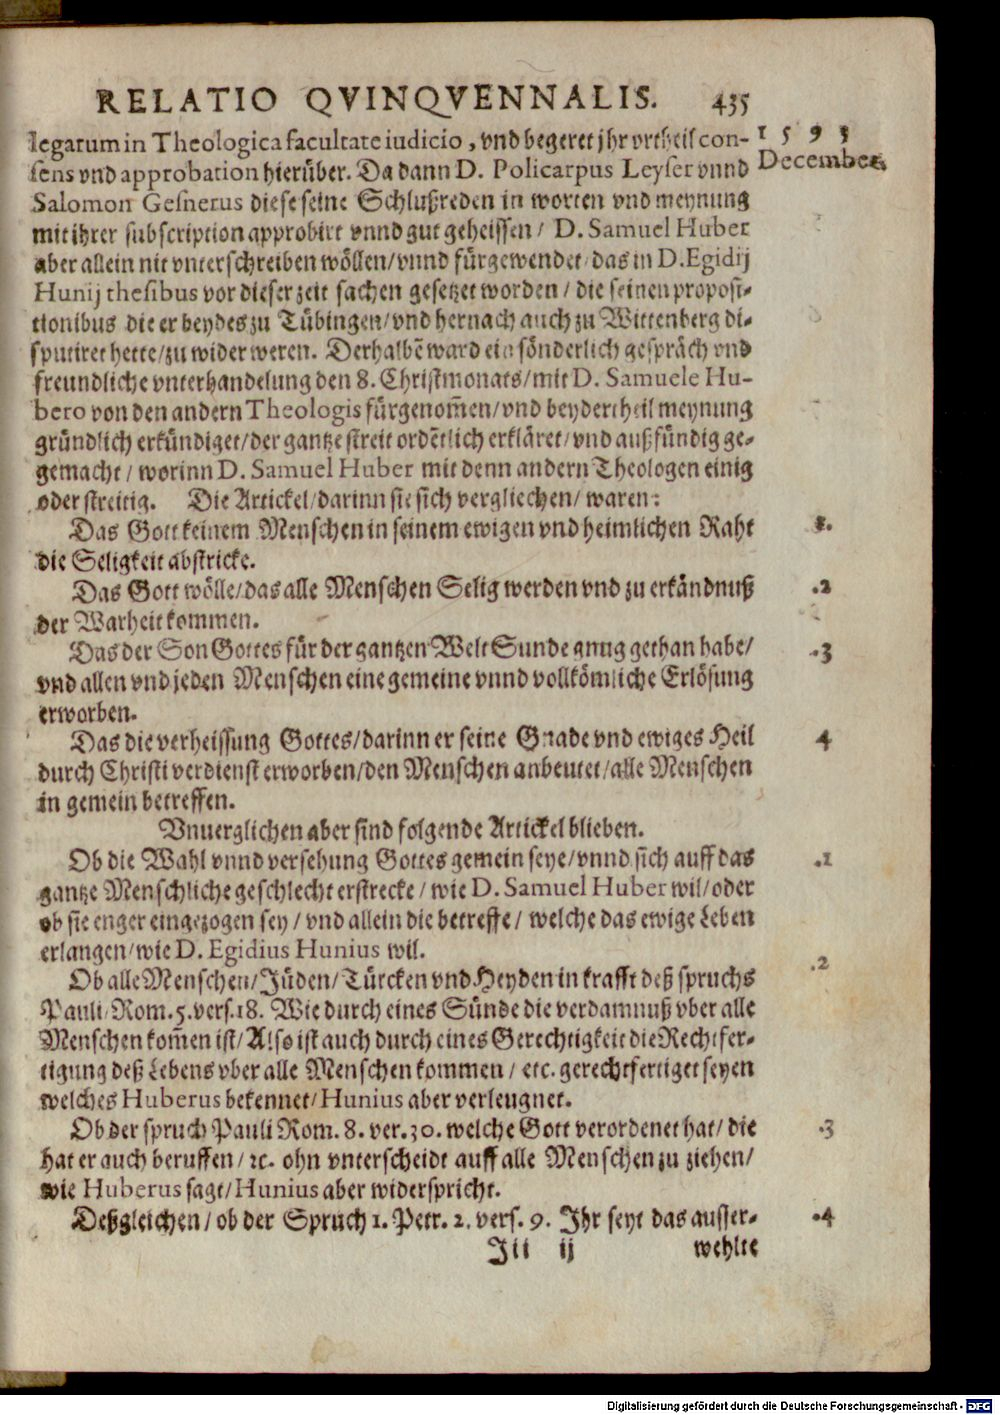 RELATIO QVINQVENNALIS. 435
legarum in Theologica facultate iudicio, vnd begeret jhr vrtheil con-
sens vnd approbation hierüber. Da dann D. Policarpus Leyser vnnd
1593
December.
Salomon Gesnerus diese seine Schlußreden in worten vnd meynung
mit ihrer subscription approbirt vnnd gut geheissen / D. Samuel Huber
aber allein nit vnterschreiben wöllen / vnnd fürgewendet / das in D. Egidij
Hunij thesibus vor dieser zeit sachen gesetzet worden / die seinen proposi-
tionibus die er beydes zu Tübingen / vnd hernach auch zu Wittenberg di-
sputiret hette / zu wider weren. Derhalbē ward ein sönderlich gespräch vnd
freundliche vnterhandelung den 8. Christmonats / mit D. Samuele Hu-
bero von den andern Theologis fürgenom̃en / vnd beydertheil meynung
gründlich erkündiget / der gantze streit ordētlich erkläret / vnd außfündig ge-
gemacht / worinn D. Samuel Huber mit denn andern Theologen einig
oder streitig. Die Artickel / darinn sie sich vergliechen / waren:
Das Gott keinem Menschen in seinem ewigen vnd heimlichen Raht 1.
die Seligkeit abstricke.
Das Gott wölle / das alle Menschen Selig werden vnd zu erkändnuß .2
der Warheit kommen.
Das der Son Gottes für der gantzen Welt Sunde gnug gethan habe / .3
vnd allen vnd jeden Menschen eine gemeine vnnd vollkömliche Erlösung
erworben.
Das die verheissung Gottes / darinn er seine Gnade vnd ewiges Heil 4
durch Christi verdienst erworben / den Menschen anbeutet / alle Menschen
in gemein betreffen.
Vnuerglichen aber sind folgende Artickel blieben.
Ob die Wahl vnnd versehung Gottes gemein seye / vnnd sich auff das .1
gantze Menschliche geschlecht erstrecke / wie D. Samuel Huber wil / oder
ob sie enger eingezogen sey / vnd allein die betreffe / welche das ewige Leben
erlangen / wie D. Egidius Hunius wil.
Ob alle Menschen / Jüden / Türcken vnd Heyden in krafft deß spruchs .2
Pauli / Rom. 5. vers. 18. Wie durch eines Sünde die verdamnuß vber alle
Menschen kom̃en ist / Also ist auch durch eines Gerechtigkeit die Rechtfer-
tigung deß Lebens vber alle Menschen kommen / etc. gerechtfertiget seyen
welches Huberus bekennet / Hunius aber verleugnet.
Ob der spruch Pauli Rom. 8. ver. 30. welche Gott verordenet hat / die .3
hat er auch beruffen / ꝛc. ohn vnterscheidt auff alle Menschen zu ziehen /
wie Huberus sagt / Hunius aber widerspricht.
Deßgleichen / ob der Spruch 1. Petr. 2. vers. 9. Jhr seyt das ausser- .4
Jii ij wehlte
Digitalisierung gefördert durch die Deutsche Forschungsgemeinschaft - DFG